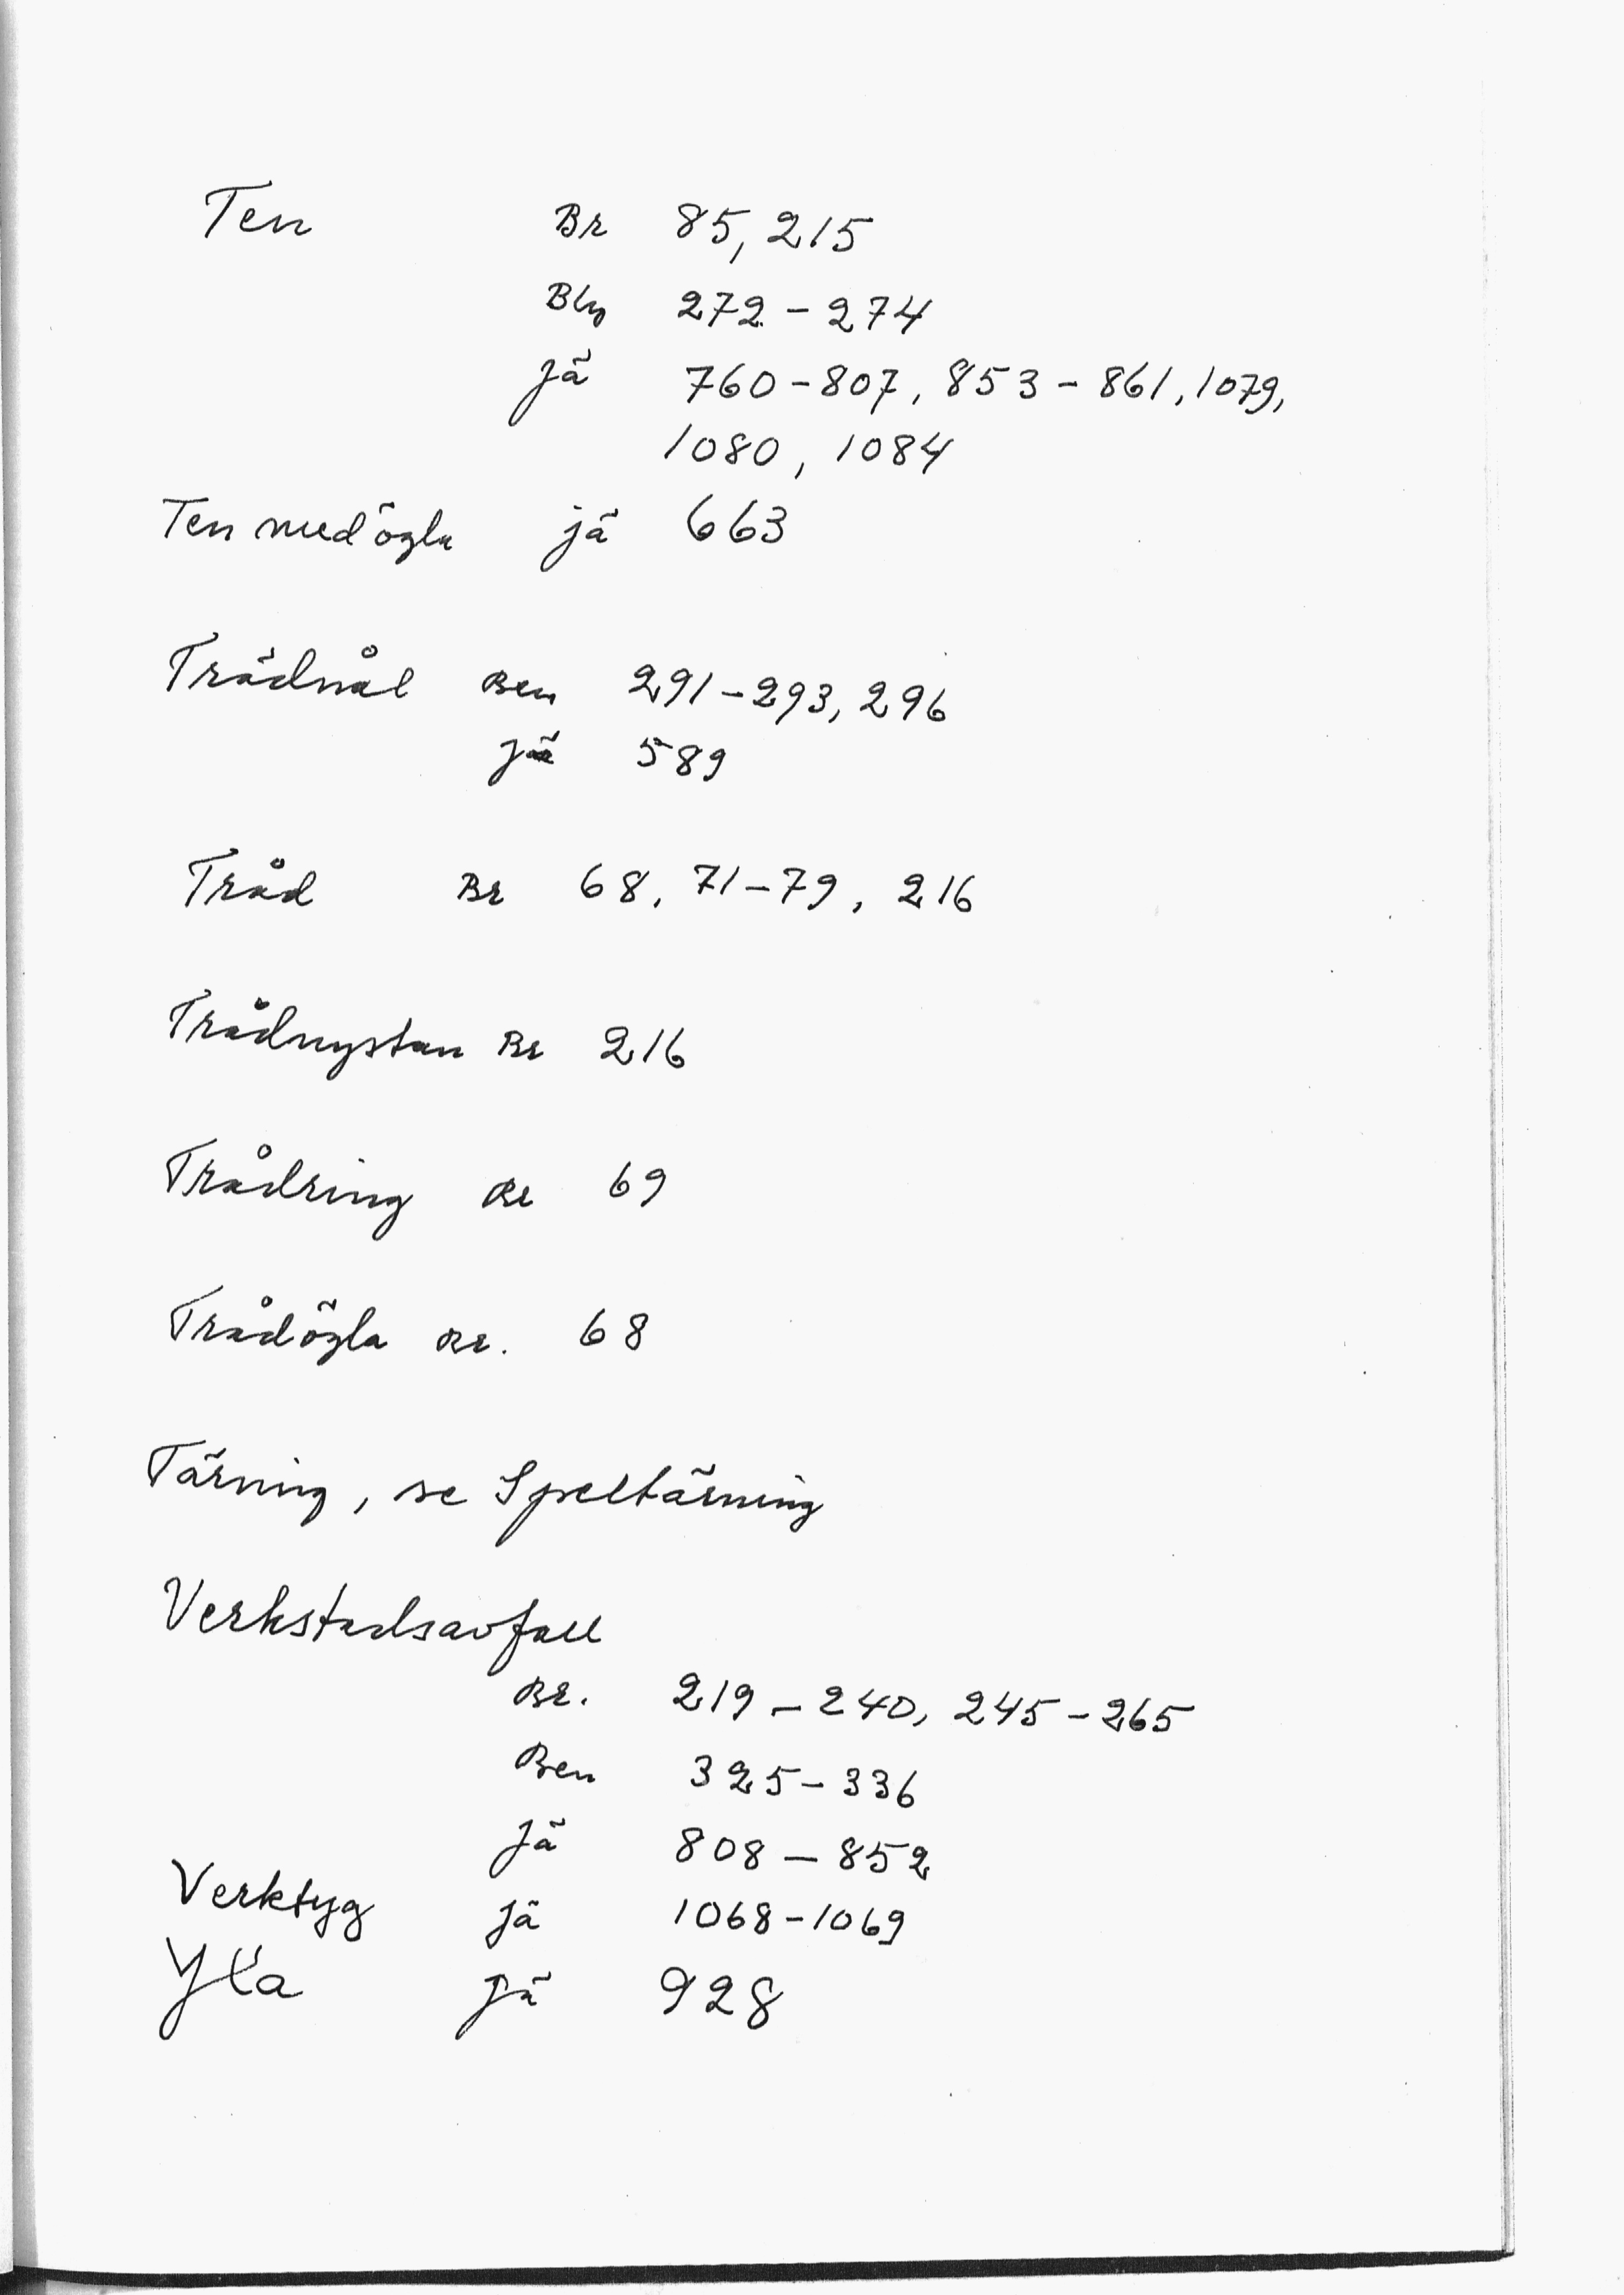 Ten Br 85, 215
Bly 272 - 274
Jä 760 - 807, 853 - 861, 1079,
1080, 1084
Ten med ögla jä 663
Trådnål Ben 291 - 293, 296
Jä 589
Tråd Br 68, 71 - 79, 216
Trådnystan Br 216
Trådring Br 69
Trådögla Br. 68
Tärning, se Speltärning
Verkstadsavfall
Br. 219 - 240, 245 - 265
Ben 325 - 336
Jä 808 - 852
Verktyg Jä 1068 - 1069
Jä 928